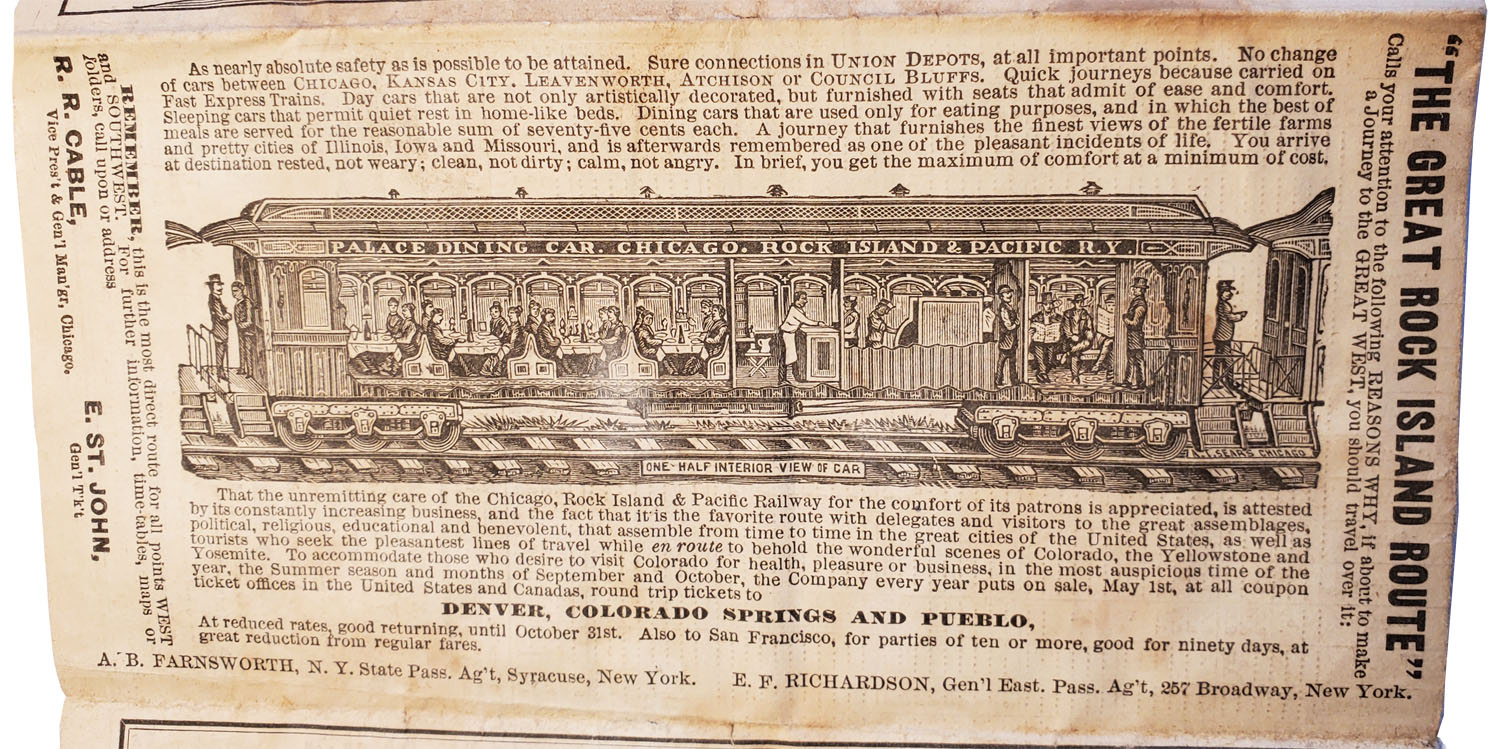 “THE GREAT ROCK ISLAND ROUTE”
Calls your attention to the following REASONS WHY, if about to make
a Journey to the GREAT WEST, you should travel over it:
As nearly absolute safety as is possible to be attained. Sure connections in UNION DEPOTS, at all important points. No change
of cars between CHICAGO, KANSAS CITY, LEAVENWORTH, ATCHISON or COUNCIL BLUFFS. Quick journeys because carried on
Fast Express Trains. Day cars that are not only artistically decorated, but furnished with seats that admit of ease and comfort.
Sleeping cars that permit quiet rest in home-like beds. Dining cars that are used only for eating purposes, and in which the best of
meals are served for the reasonable sum of seventy-five cents each. A journey that furnishes the finest views of the fertile farms
and pretty cities of Illinois, Iowa and Missouri, and is afterwards remembered as one of the pleasant incidents of life. You arrive
at destination rested, not weary; clean, not dirty; calm, not angry. In brief, you get the maximum of comfort at a minimum of cost.
PALACE DINING CAR. CHICAGO. ROCK ISLAND & PACIFIC R.Y.
SEARS CHICAGO
ONE-HALF INTERIOR VIEW OF CAR
That the unremitting care of the Chicago, Rock Island & Pacific Railway for the comfort of its patrons is appreciated, is attested
by its constantly increasing business, and the fact that it is the favorite route with delegates and visitors to the great assemblages,
political, religious, educational and benevolent, that assemble from time to time in the great cities of the United States, as well as
tourists who seek the pleasantest lines of travel while en route to behold the wonderful scenes of Colorado, the Yellowstone and
Yosemite. To accommodate those who desire to visit Colorado for health, pleasure or business, in the most auspicious time of the
year, the Summer season and months of September and October, the Company every year puts on sale, May 1st, at all coupon
ticket offices in the United States and Canadas, round trip tickets to
DENVER, COLORADO SPRINGS AND PUEBLO,
At reduced rates, good returning, until October 31st. Also to San Francisco, for parties of ten or more, good for ninety days, at
great reduction from regular fares.
REMEMBER, this is the most direct route for all points WEST
and SOUTHWEST. For further information, time-tables, maps or
folders, call upon or address
R. R. CABLE,
Vice Pres't & Gen'l Man'gr, Chicago.
E. ST. JOHN,
Gen'l T'k't
A. B. FARNSWORTH, N. Y. State Pass. Ag't, Syracuse, New York.
E. F. RICHARDSON, Gen'l East. Pass. Ag't, 257 Broadway, New York.